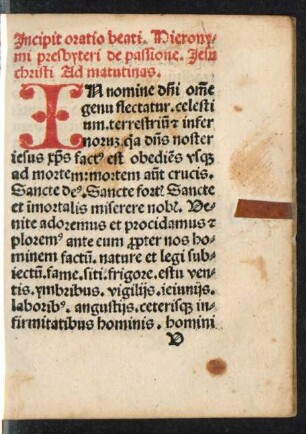 Incipit oratio beati. Hierony⸗
mi presbyteri de passione. Jesu
christi Ad matutinas.
IN nomine dñi om̄e
genu flectatur. celesti
um. terrestriū ⁊ infer
noruꝫ. qꝛ dn̄s noster
iesus xp̄s fact⁹ est obediēs vsqꝫ
ad mortem: mortem aūt crucis.
Sancte de⁹. Sancte fort. Sancte
et īmortalis miserere nob. Ve⸗
nite adoremus et procidamus ⁊
plorem⁹ ante eum ꝓpter nos ho⸗
minem factū. nature et legi sub⸗
iectū. fame. siti. frigore. estu ven⸗
tis. ymbribus. vigilijs. ieiunijs.
laborib⁹. angustijs. ceterisqꝫ in⸗
firmitatibus hominis. homini